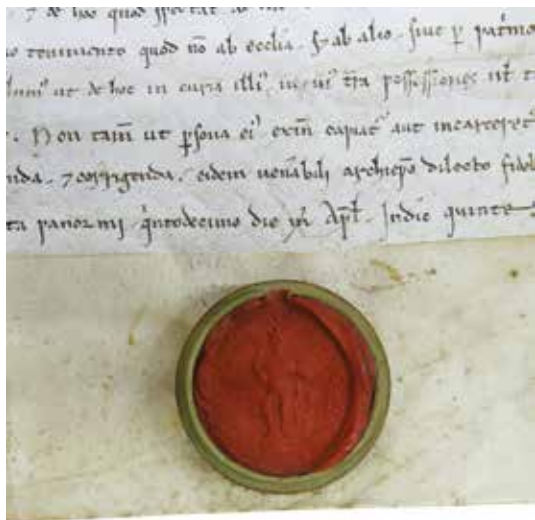 ⁊ de hoc quod spectat ad
tenimento quod nō ab ecclīa. s; ab alio. siue ꝑ
ut de hoc in curia illiꝰ in cuiꝰ t̄ra possessiones ul̄
. Non tam̄ ut ꝑsona eiꝰ capiat᷑ aut incarceret᷑
nda. ⁊ corrigenda. eidem uen̄abili archiep̄o dilecto fidel
ta panormi q̇ntodecimo die Ap̄l. Indic̄ quinte